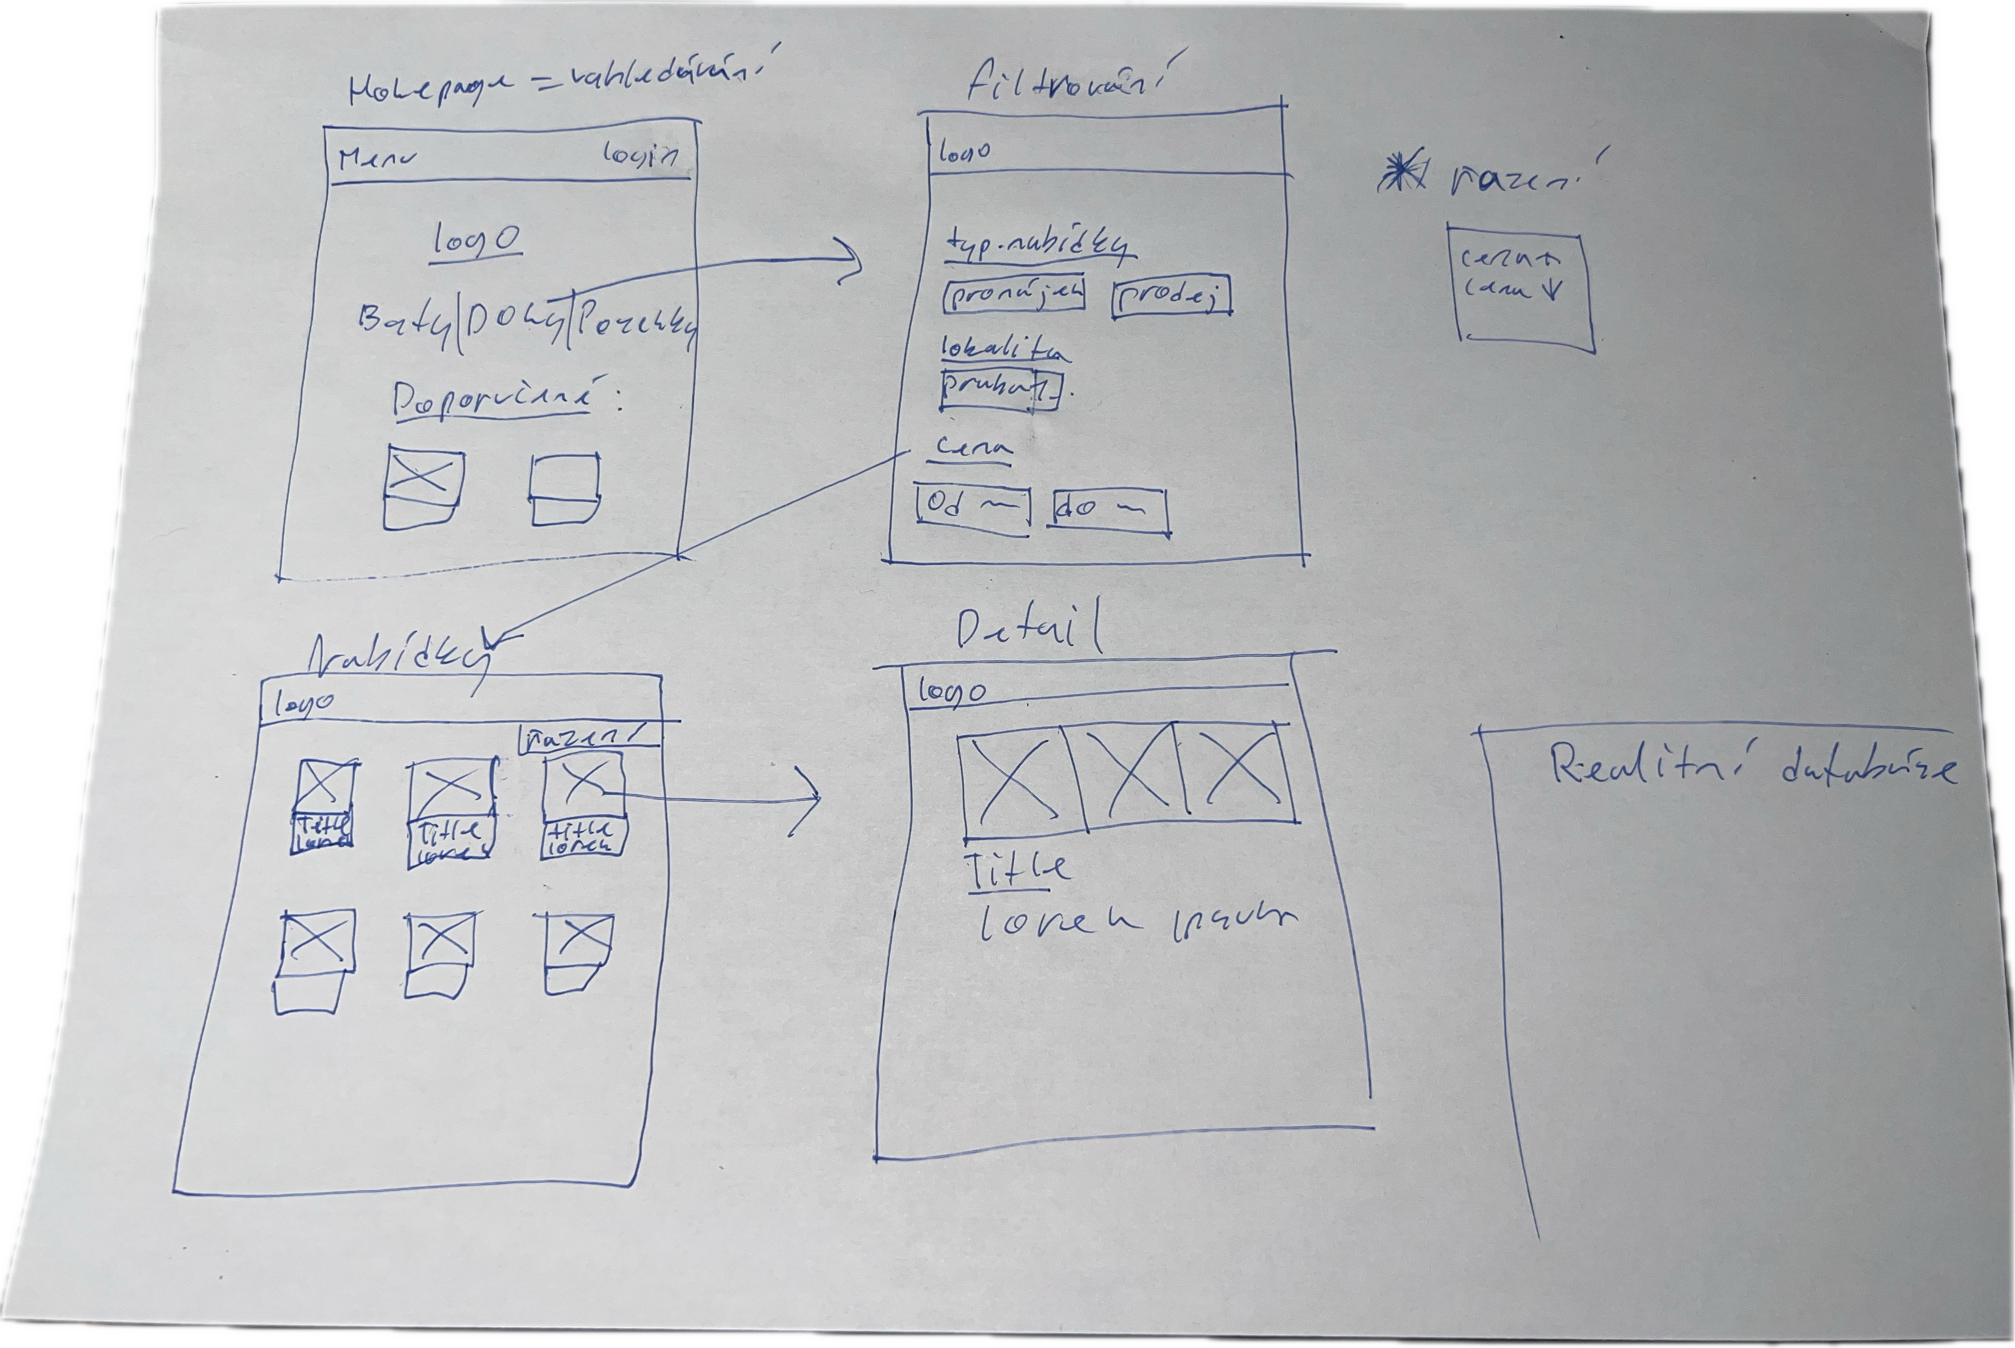 Homepage = vahledávání
Menu login
logo
Baty|Domy|Pozemky
Doporučené:
filtrování
logo
typ.nabídky
pronájem prodej
lokalita
cena
od do
* řazení
cena ↑
cena ↓
Nabídky
logo
řazení
Title Title title
lorem lorem
Detail
logo
Title
lorem
Realitní databáze